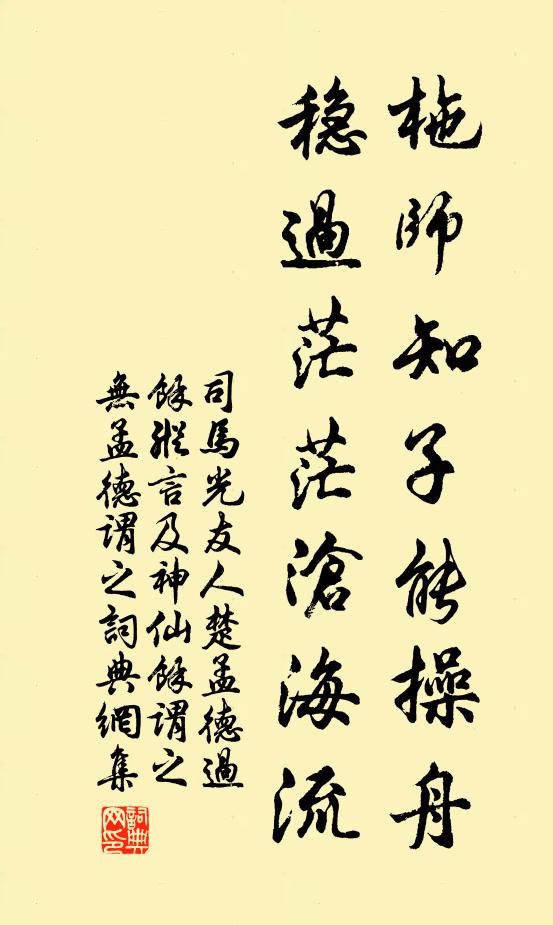 柂師知子能操舟
穩過茫茫滄海流
司馬光友人楚孟德過
餘縱言及神仙餘謂之
無孟德謂之詞典網集
詞典
网印